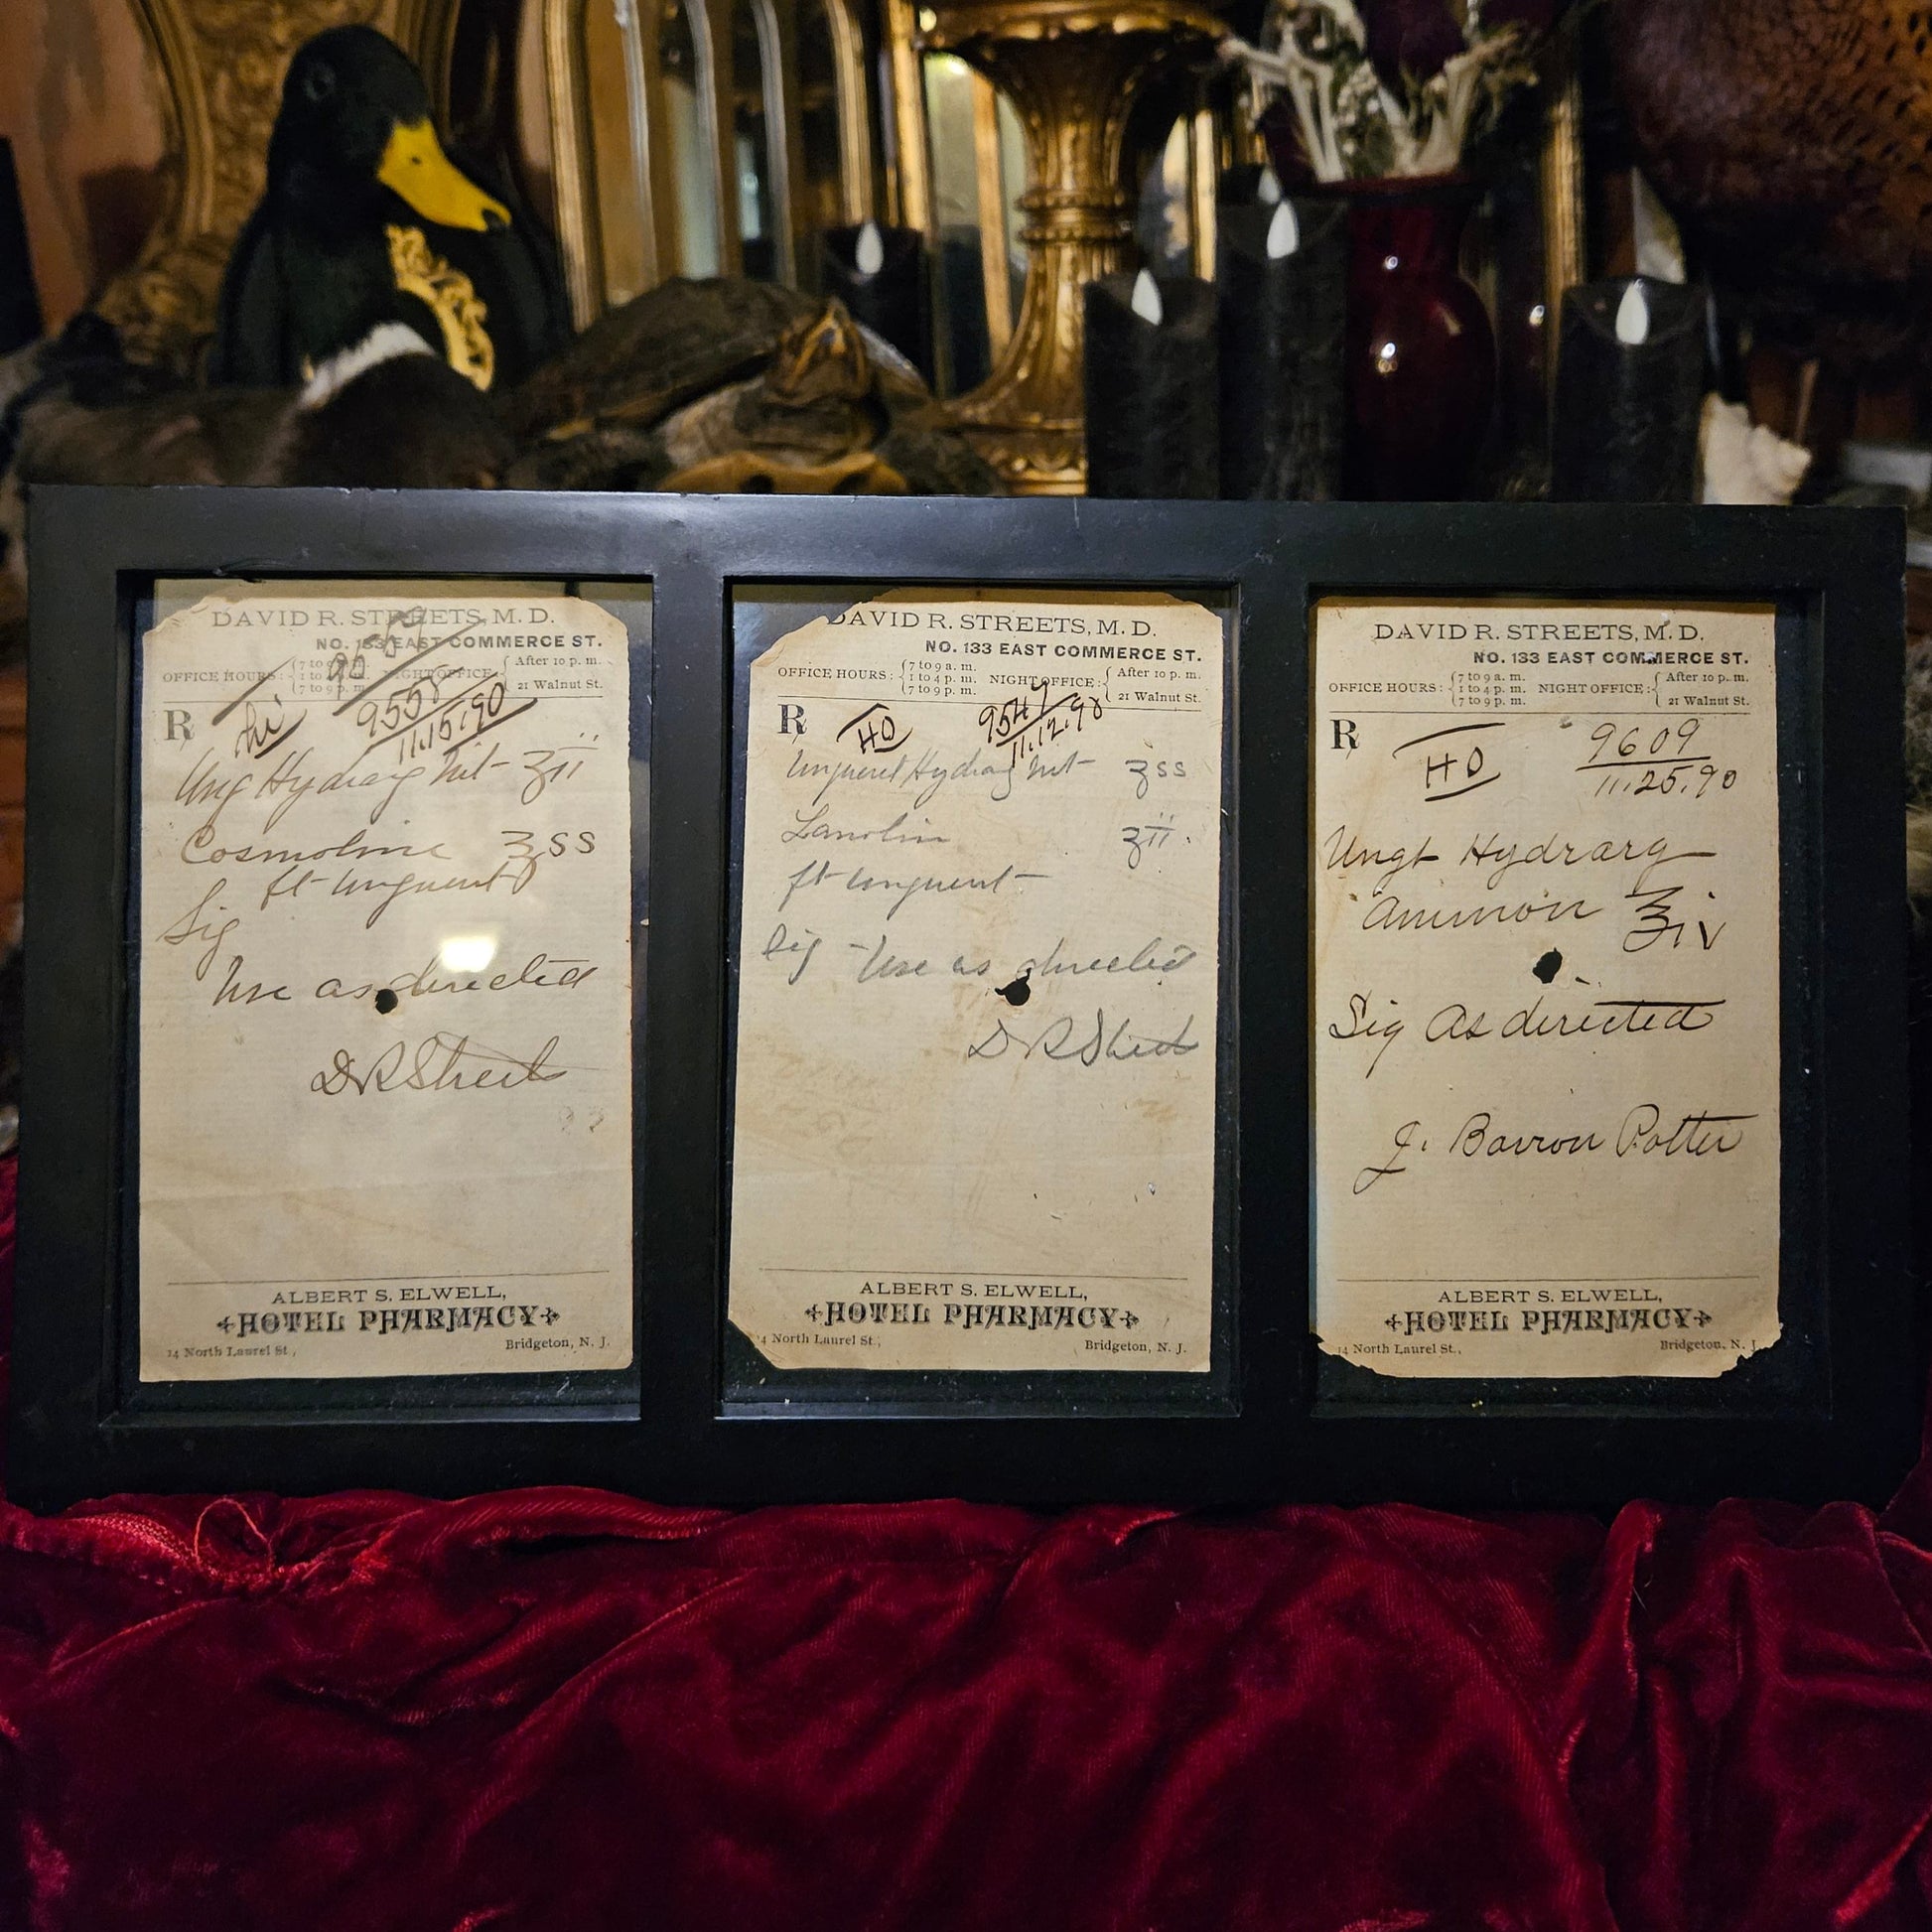 DAVID R. STREETS, M. D.
NO. 133 EAST COMMERCE ST.
OFFICE HOURS: 7 to 9 a. m. 1 to 4 p. m. 7 to 9 p. m. NIGHT OFFICE: After 10 p. m. 21 Walnut St.
R
9558
11.15.90
Ung Hydrarg Nit ʒii
Cosmoline ʒss
ft unguent
Sig
Use as directed
D R Streets
ALBERT S. ELWELL,
HOTEL PHARMACY
14 North Laurel St., Bridgeton, N. J.
DAVID R. STREETS, M. D.
NO. 133 EAST COMMERCE ST.
OFFICE HOURS: 7 to 9 a. m. 1 to 4 p. m. 7 to 9 p. m. NIGHT OFFICE: After 10 p. m. 21 Walnut St.
R
HO
9547
11.12.90
Unguent Hydrarg Nit ʒss
Lanolin ʒii.
ft unguent
Sig - Use as directed
D R Streets
ALBERT S. ELWELL,
HOTEL PHARMACY
14 North Laurel St., Bridgeton, N. J.
DAVID R. STREETS, M. D.
NO. 133 EAST COMMERCE ST.
OFFICE HOURS: 7 to 9 a. m. 1 to 4 p. m. 7 to 9 p. m. NIGHT OFFICE: After 10 p. m. 21 Walnut St.
R
HO
9609
11.25.90
Ungt Hydrarg
Ammon ʒiv
Sig As directed
J. Barron Potter
ALBERT S. ELWELL,
HOTEL PHARMACY
14 North Laurel St., Bridgeton, N. J.